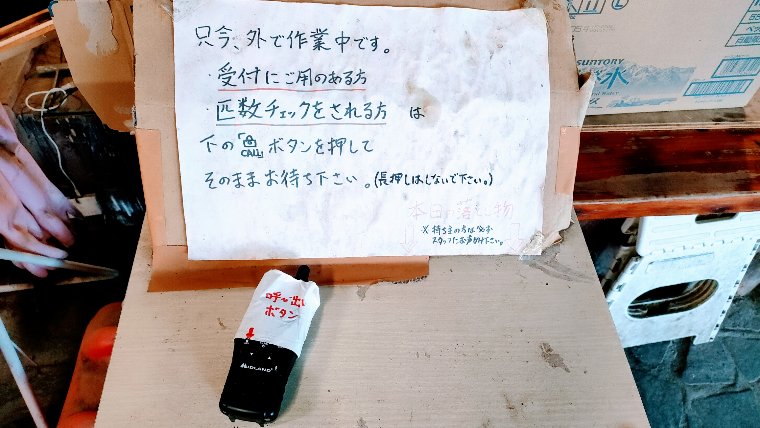 只今、外で作業中です。
・受付にご用のある方
・匹数チェックをされる方 は
下の「CALL」ボタンを押して
そのままお待ち下さい。(長押しはしないで下さい。)
本日の落とし物
※持ち主の方は必ず
スタッフにお声がけ下さい。
呼び出し
ボタン
MIDLAND
SUNTORY